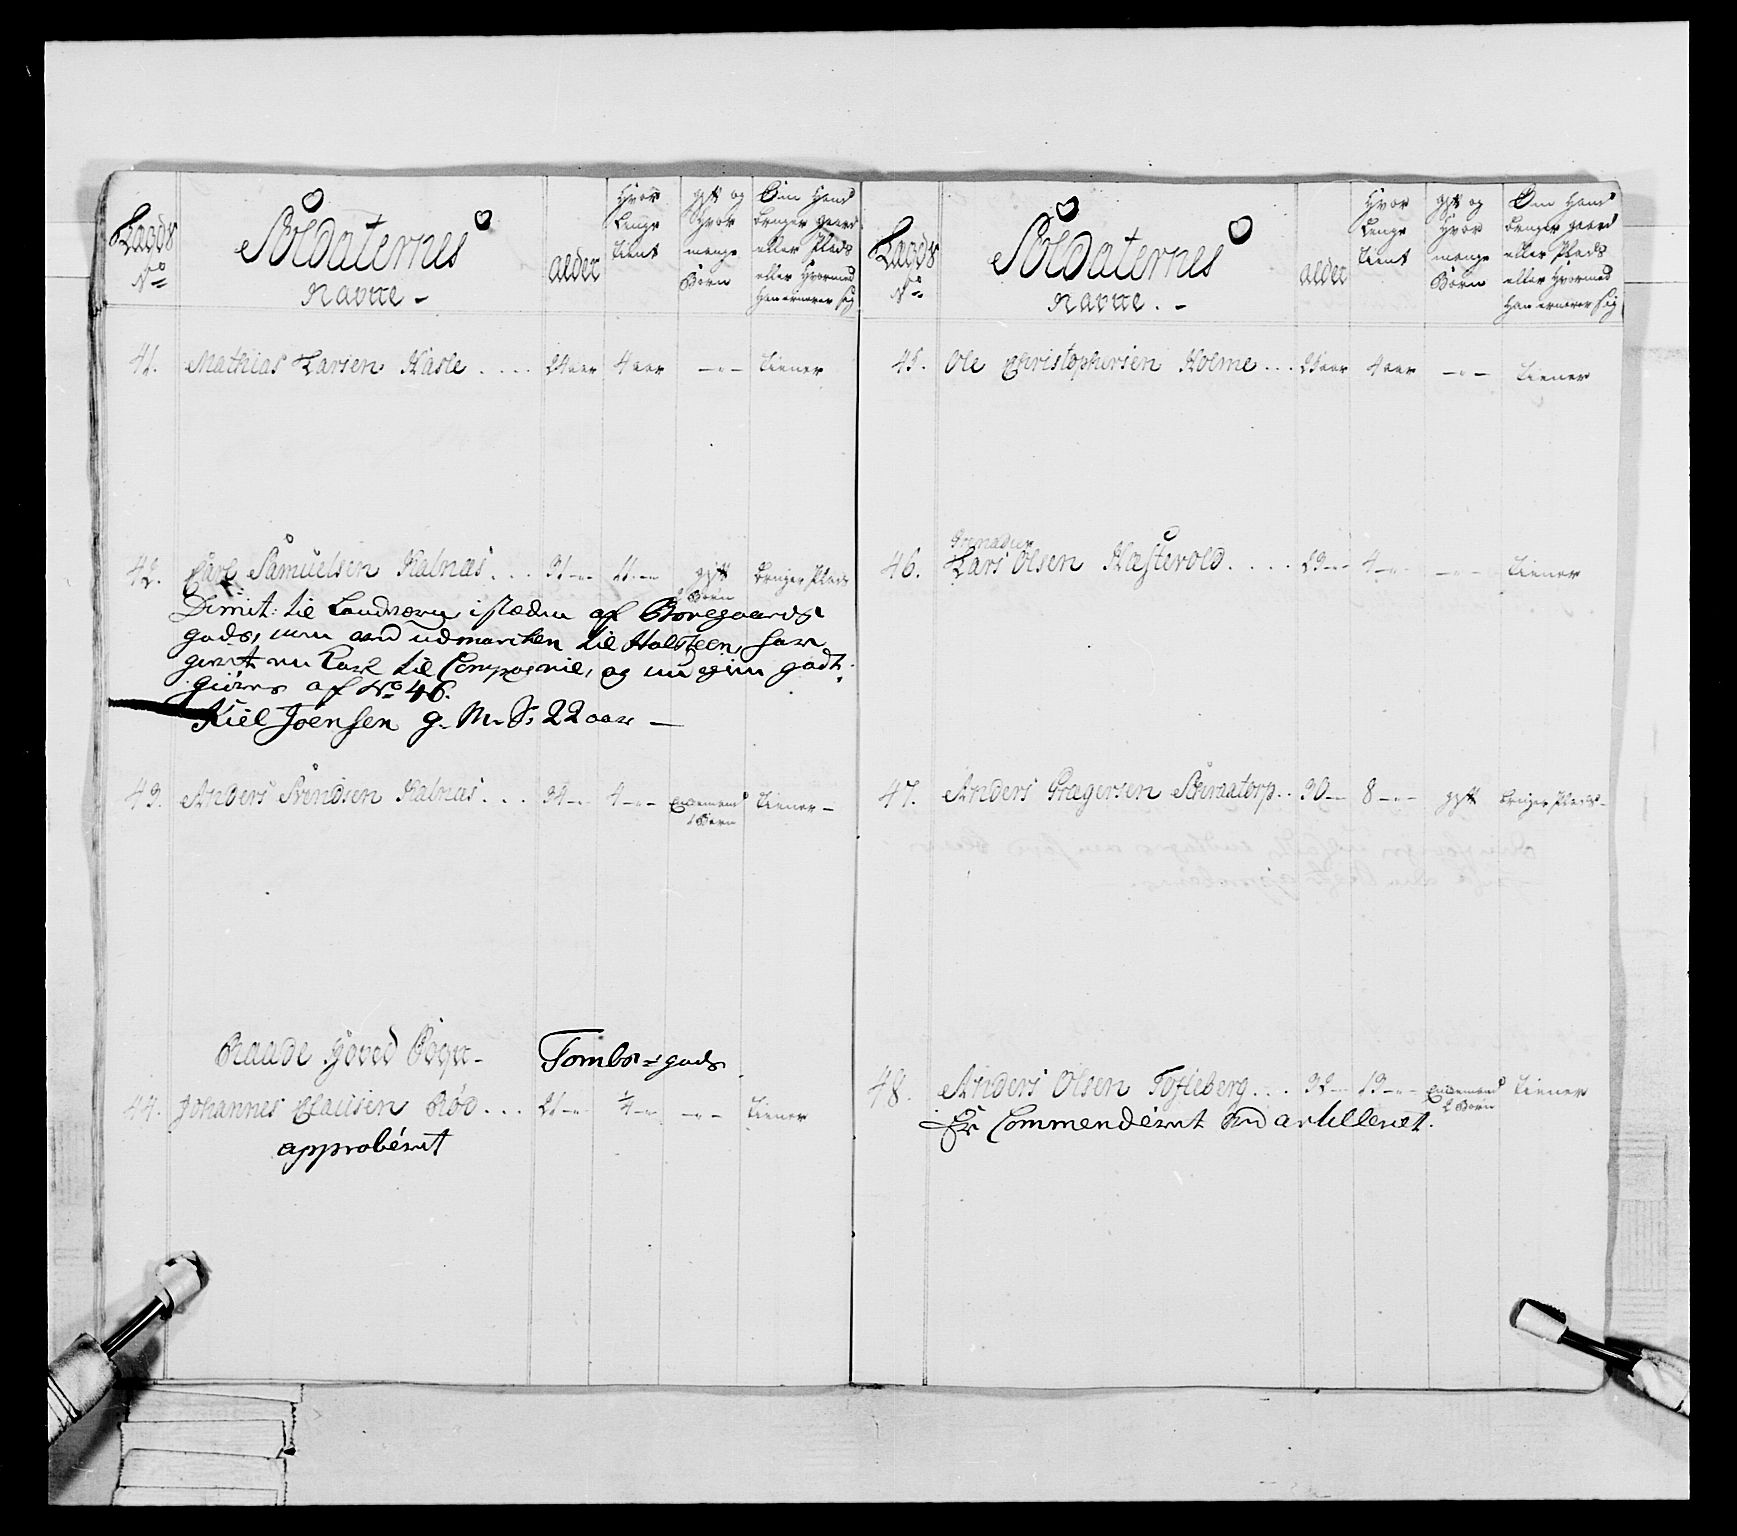 Laugds No
Soldaternes
Navne -
alder
Hvor
Lenge
tient
gift og
Hvor
mange
Børn
Om Hand
bruger gaard
eller Plads
eller Hvormed
Han ernerer sig
41. Mathias Larsen Kasle . . . . 24 aar 4 aar -"- tiener
42. Carl Samuelsen Kalnæs . . . 31 -"- 11 -"- gift bruger Plads
Børn
Dimit: til Landværn, isteden af Borregaards
gods,
udmarchen til Holsteen, har
til Compagnie, og
af No 46.
Kiel Joensen g. M. S: 22 aar -
43. Anders Svendsen Kalnæs . . . 34 -"- 4 -"- Enkemand tiener -
1 Børn
Raade Hoved Sogn - Tombs gods
44. Johannes Clausen Rød . . . 21 -"- ¼ -"- -"- tiener
approbérit
Laugds No
Soldaternes
Navne . -
alder
Hvor
Lenge
tient
gift og
Hvor
mange
Børn
Om Hand
bruger gaard
eller Plads
eller Hvormed
Han ernerer sig
45. Ole Christophersen Holme . . . 25 aar 4 aar -"- tiener
Grenadeer
46. Lars Olsen Hæsterold . . . . 29 -"- 4 -"- -"- tiener
47. Anders Gregersen Skraatorp . . 30 -"- 8 -"- gift bruger Plads -
48. Anders Olsen Tofteberg . . . 32 -"- 13 -"- Enkemand tiener
2 Børn
Er Commenderit ved artilleriet.